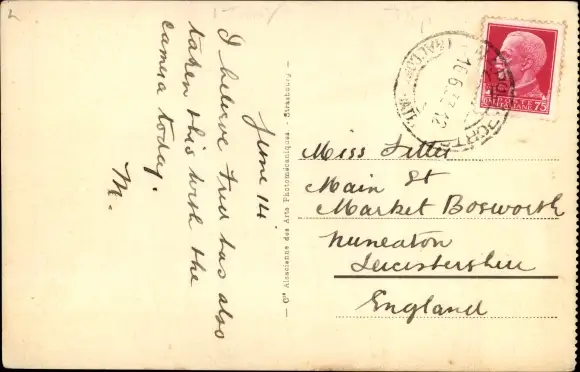 June 14
I believe Fred has also
taken this with the
camera today.
M.
— Cie Alsacienne des Arts Photomécaniques. - Strasbourg. —
Miss
Main St
Market Bosworth
Nuneaton
Leicestershire
England
POSTE
ITALIANE
75